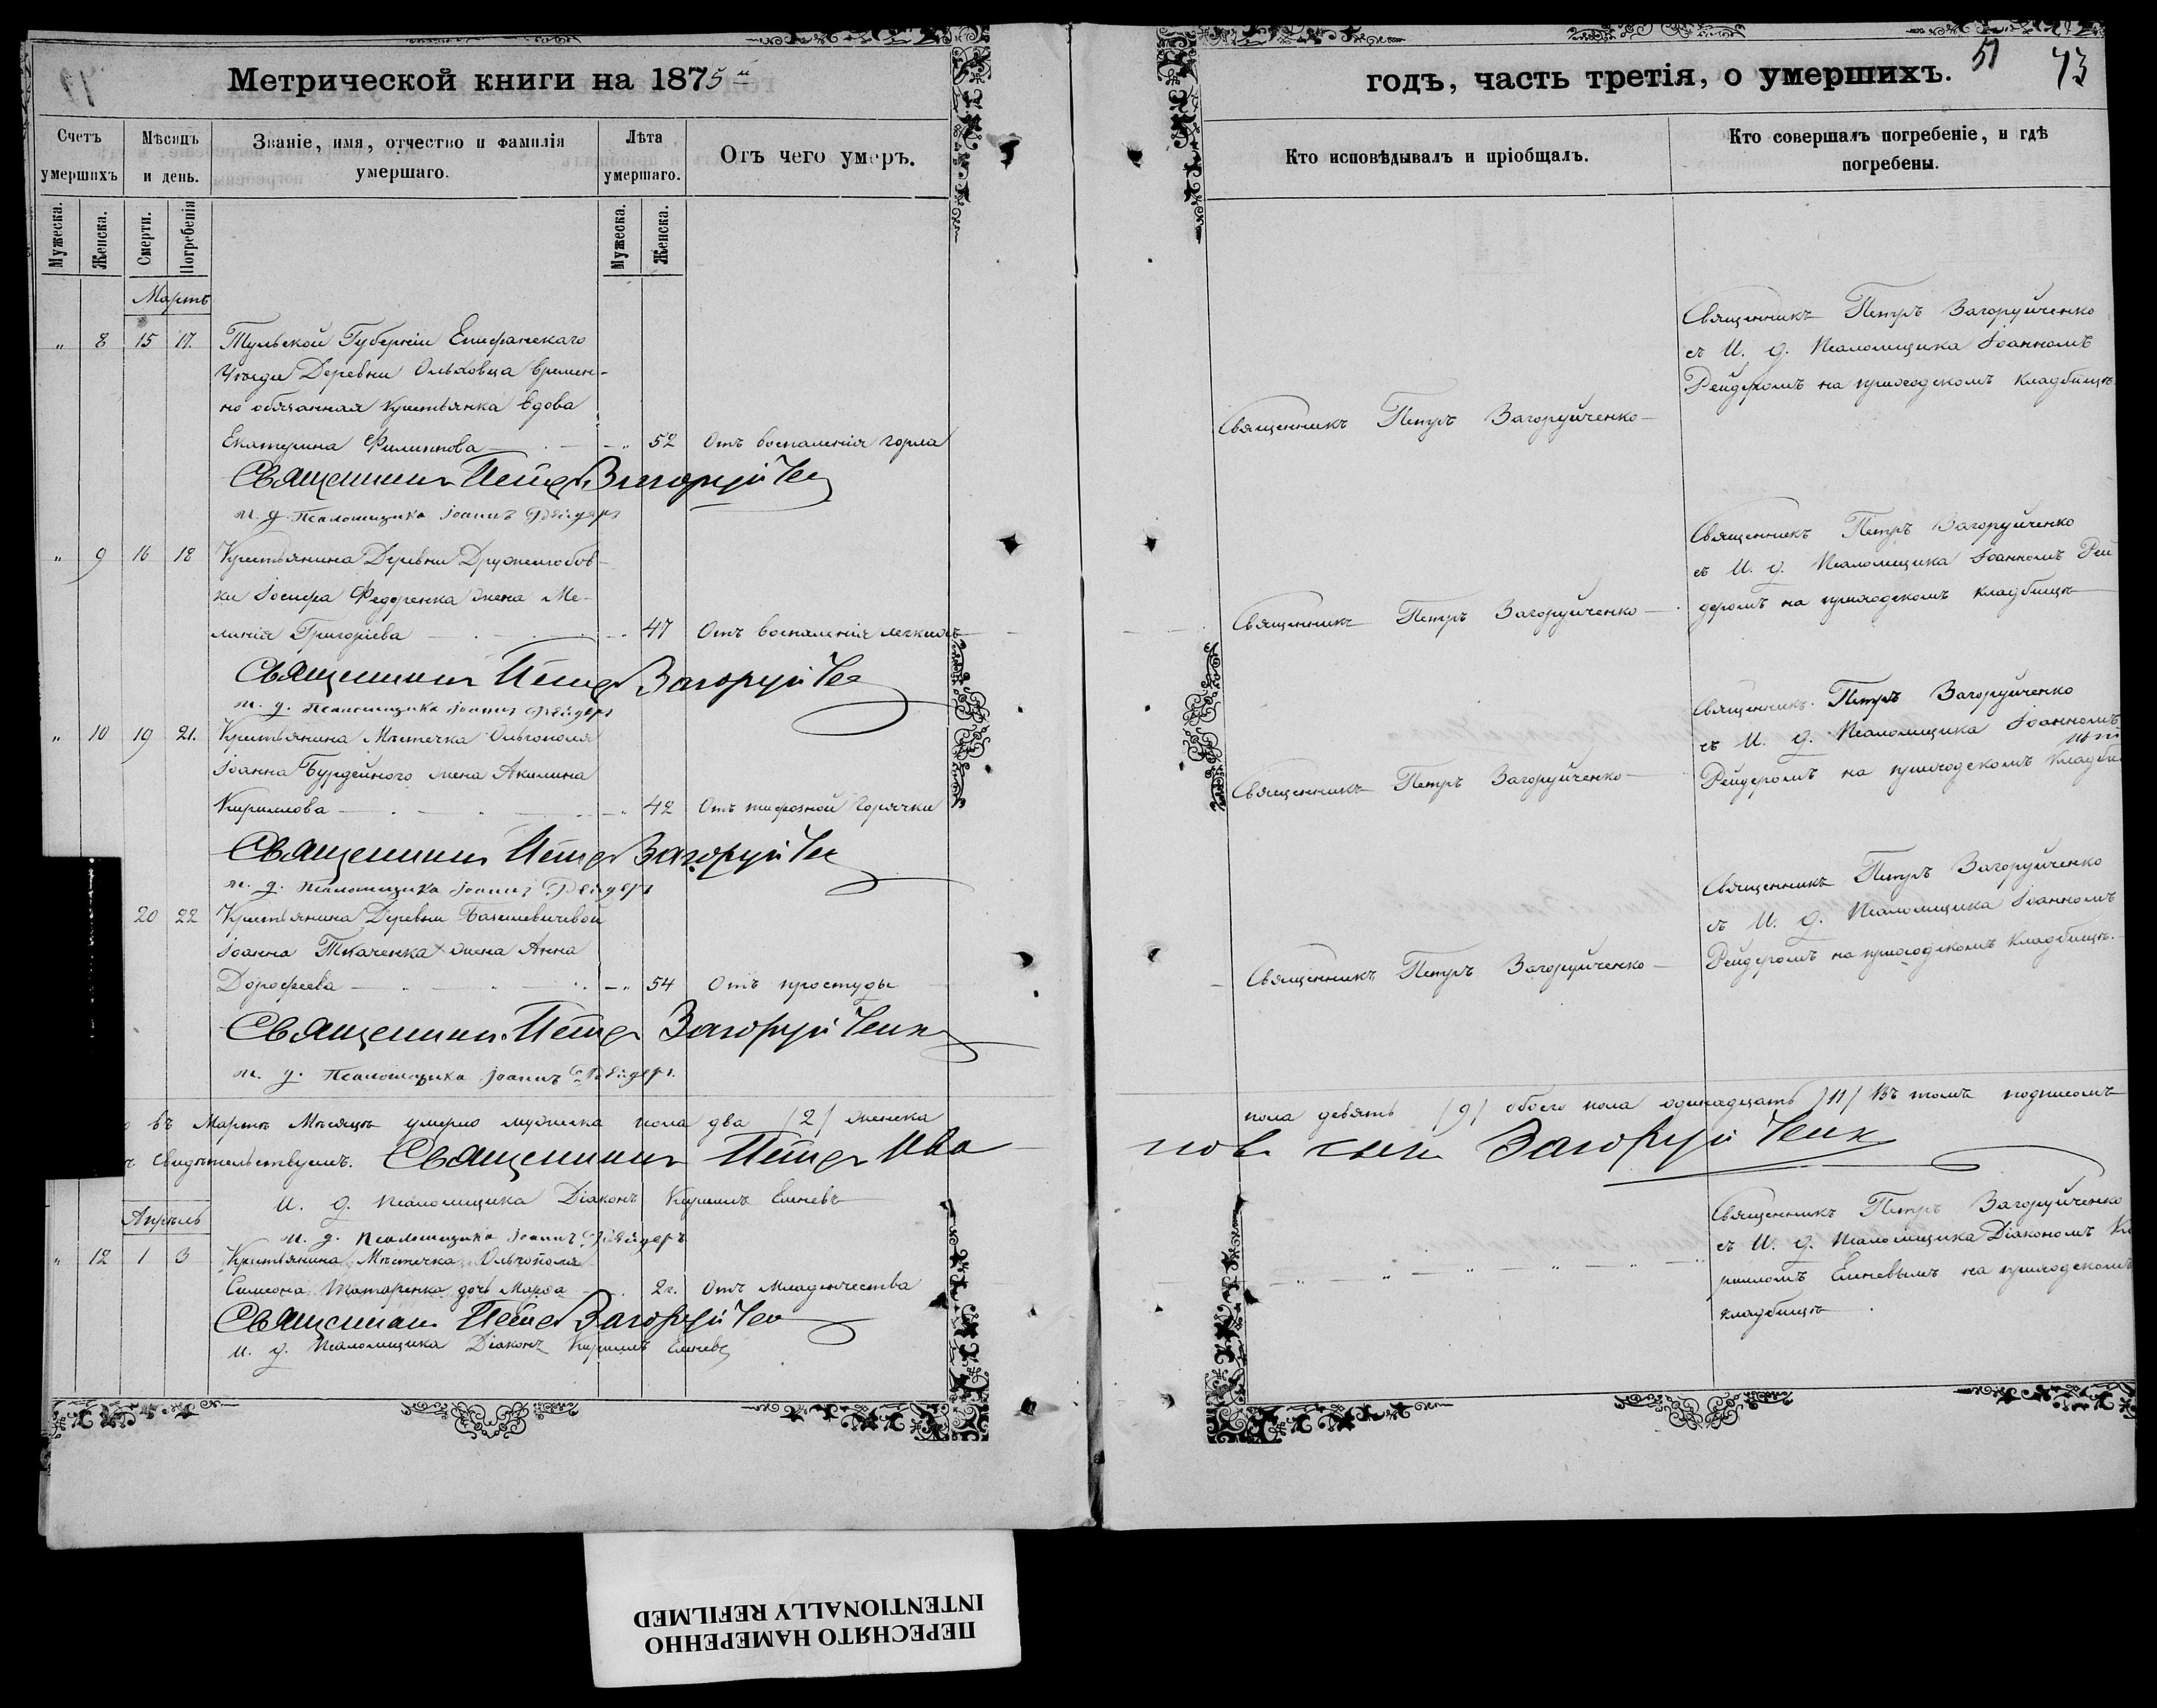 Метрической книги на 1875 й
годъ, часть третія, о умершихъ.
51 73
Счетъ умершихъ
Мѣсяцъ и день.
Званіе, имя, отчество и фамилія умершаго.
Лѣта умершаго.
Отъ чего умеръ.
Кто исповѣдывалъ и пріобщалъ.
Кто совершалъ погребеніе, и гдѣ погребены.
Мужеска.
Женска.
Смерти.
Погребенія
Мужеска.
Женска.
Мартъ
„ 8 15 17. Тульской Губерніи Епифанскаго
Уѣзда Деревни Ольховца времен-
но обязанная крестьянка вдова
Екатерина Филиппова 52 Отъ воспаленія горла
Священникъ Петръ Загоруйченко
Священникъ Петръ Загоруйченко
съ И. д. Псаломщика Іоанномъ
Рейдеромъ на приходскомъ кладбищѣ
Священникъ Петръ Загоруйче
и. д. Псаломщика Іоаннъ Рейдеръ
„ 9 16 18 Крестьянина Деревни Дружелюбов-
ки Іосифа Федоренка жена Ме-
ланія Григоріева 47 Отъ воспаленія легкихъ
Священникъ Петръ Загоруйченко
Священникъ Петръ Загоруйченко
съ И. д. Псаломщика Іоанномъ Рей
деромъ на приходскомъ кладбищѣ
Священникъ Петръ Загоруйче
и. д. Псаломщика Іоаннъ Рейдеръ
„ 10 19 21. Крестьянина Мѣстечка Ольгополя
Іоанна Бурдейного жена Акилина
Кириллова 42 Отъ тифозной горячки
Священникъ Петръ Загоруйченко
Священникъ Петръ Загоруйченко
съ И. д. Псаломщика Іоанномъ
Рейдеромъ на приходскомъ кладби
щѣ
Священникъ Петръ Загоруйче
и. д. Псаломщика Іоаннъ Рейдеръ
20 22 Крестьянина Деревни Базилевичевой
Іоанна Ткаченка жена Анна
Дорофеева 54 Отъ простуды
Священникъ Петръ Загоруйченко
Священникъ Петръ Загоруйченко
съ И. д. Псаломщика Іоанномъ
Рейдеромъ на приходскомъ кладбищѣ.
Священникъ Петръ Загоруйченк
и. д. Псаломщика Іоаннъ Рейдеръ.
въ Мартѣ Мѣсяцѣ умерло мужеска пола два /2/ женска
пола девять /9/ обоего пола одинадцать /11/ Въ томъ подписомъ
свидѣтельствуемъ. Священникъ Петръ Ива
новъ сынъ Загоруйченк
И. д. Псаломщика Діаконъ Кириллъ Еленевъ
и. д. Псаломщика Іоаннъ Рейдеръ
Апрѣль
„ 12 1 3 Крестьянина Мѣстечка Ольгополя
Симеона Татаренка дочь Марфа 2 г. Отъ Младенчества
Священникъ Петръ Загоруйченко
съ И. д. Псаломщика Діакономъ Ки
рилломъ Еленевымъ на приходскомъ
кладбищѣ
Священникъ Петръ Загоруйче
И. д. Псаломщика Діаконъ Кириллъ Еленевъ
ПЕРЕСНЯТО НАМЕРЕННО
INTENTIONALLY REFILMED